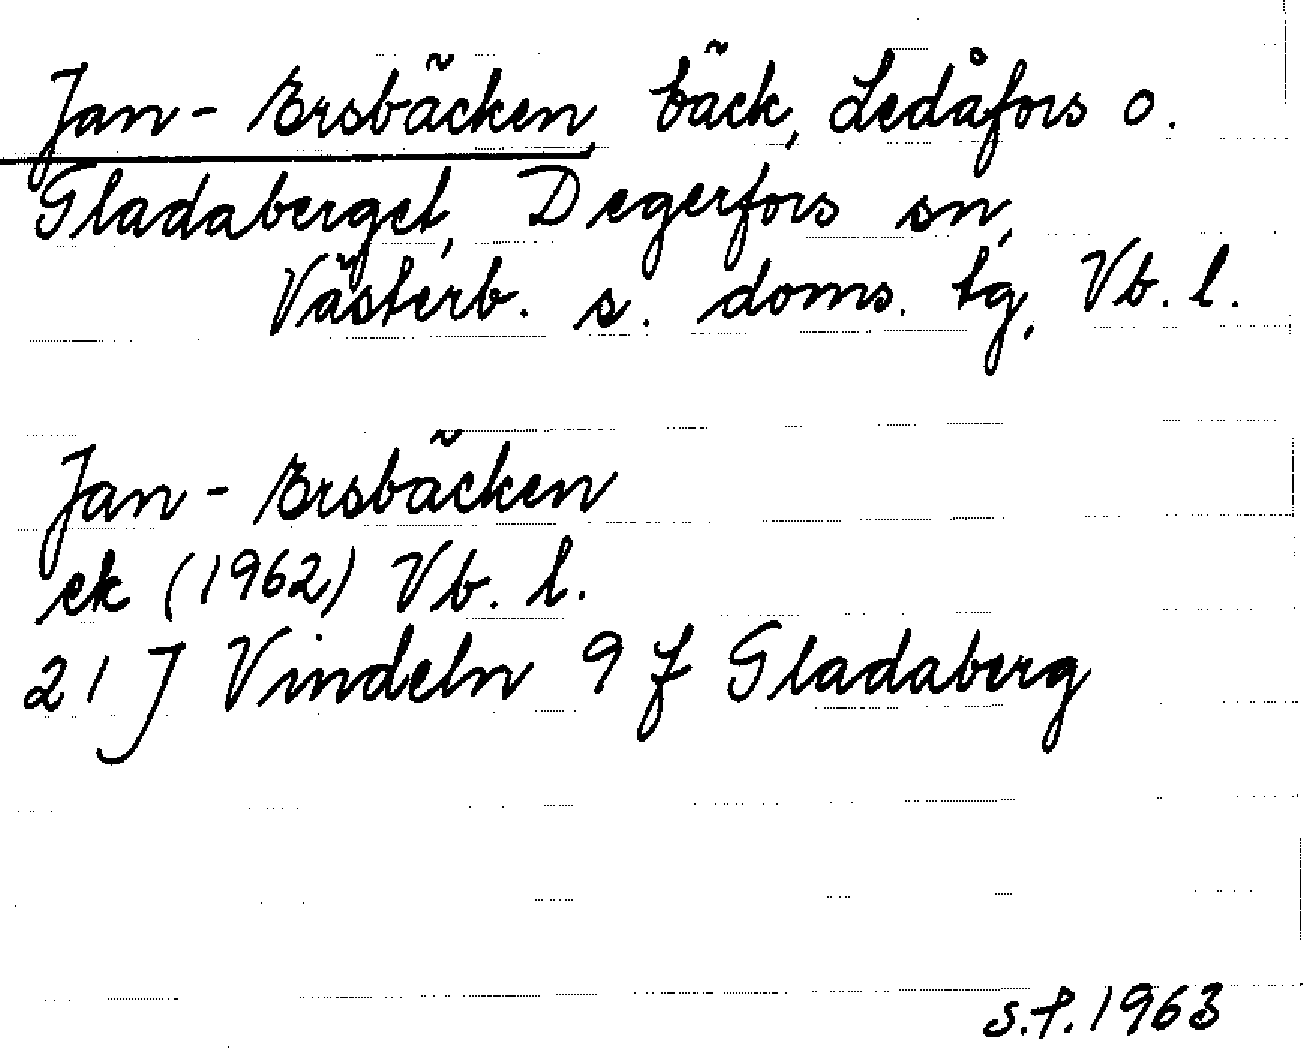 Jan-Ersbäcken, bäck, Ledåfors o.
Gladaberget, Degerfors sn,
Västerb. s. doms. tg, Vb. l.
Jan-Ersbäcken
ek (1962) Vb. l.
21 J Vindeln 9 f Gladaberg
S.F. 1963